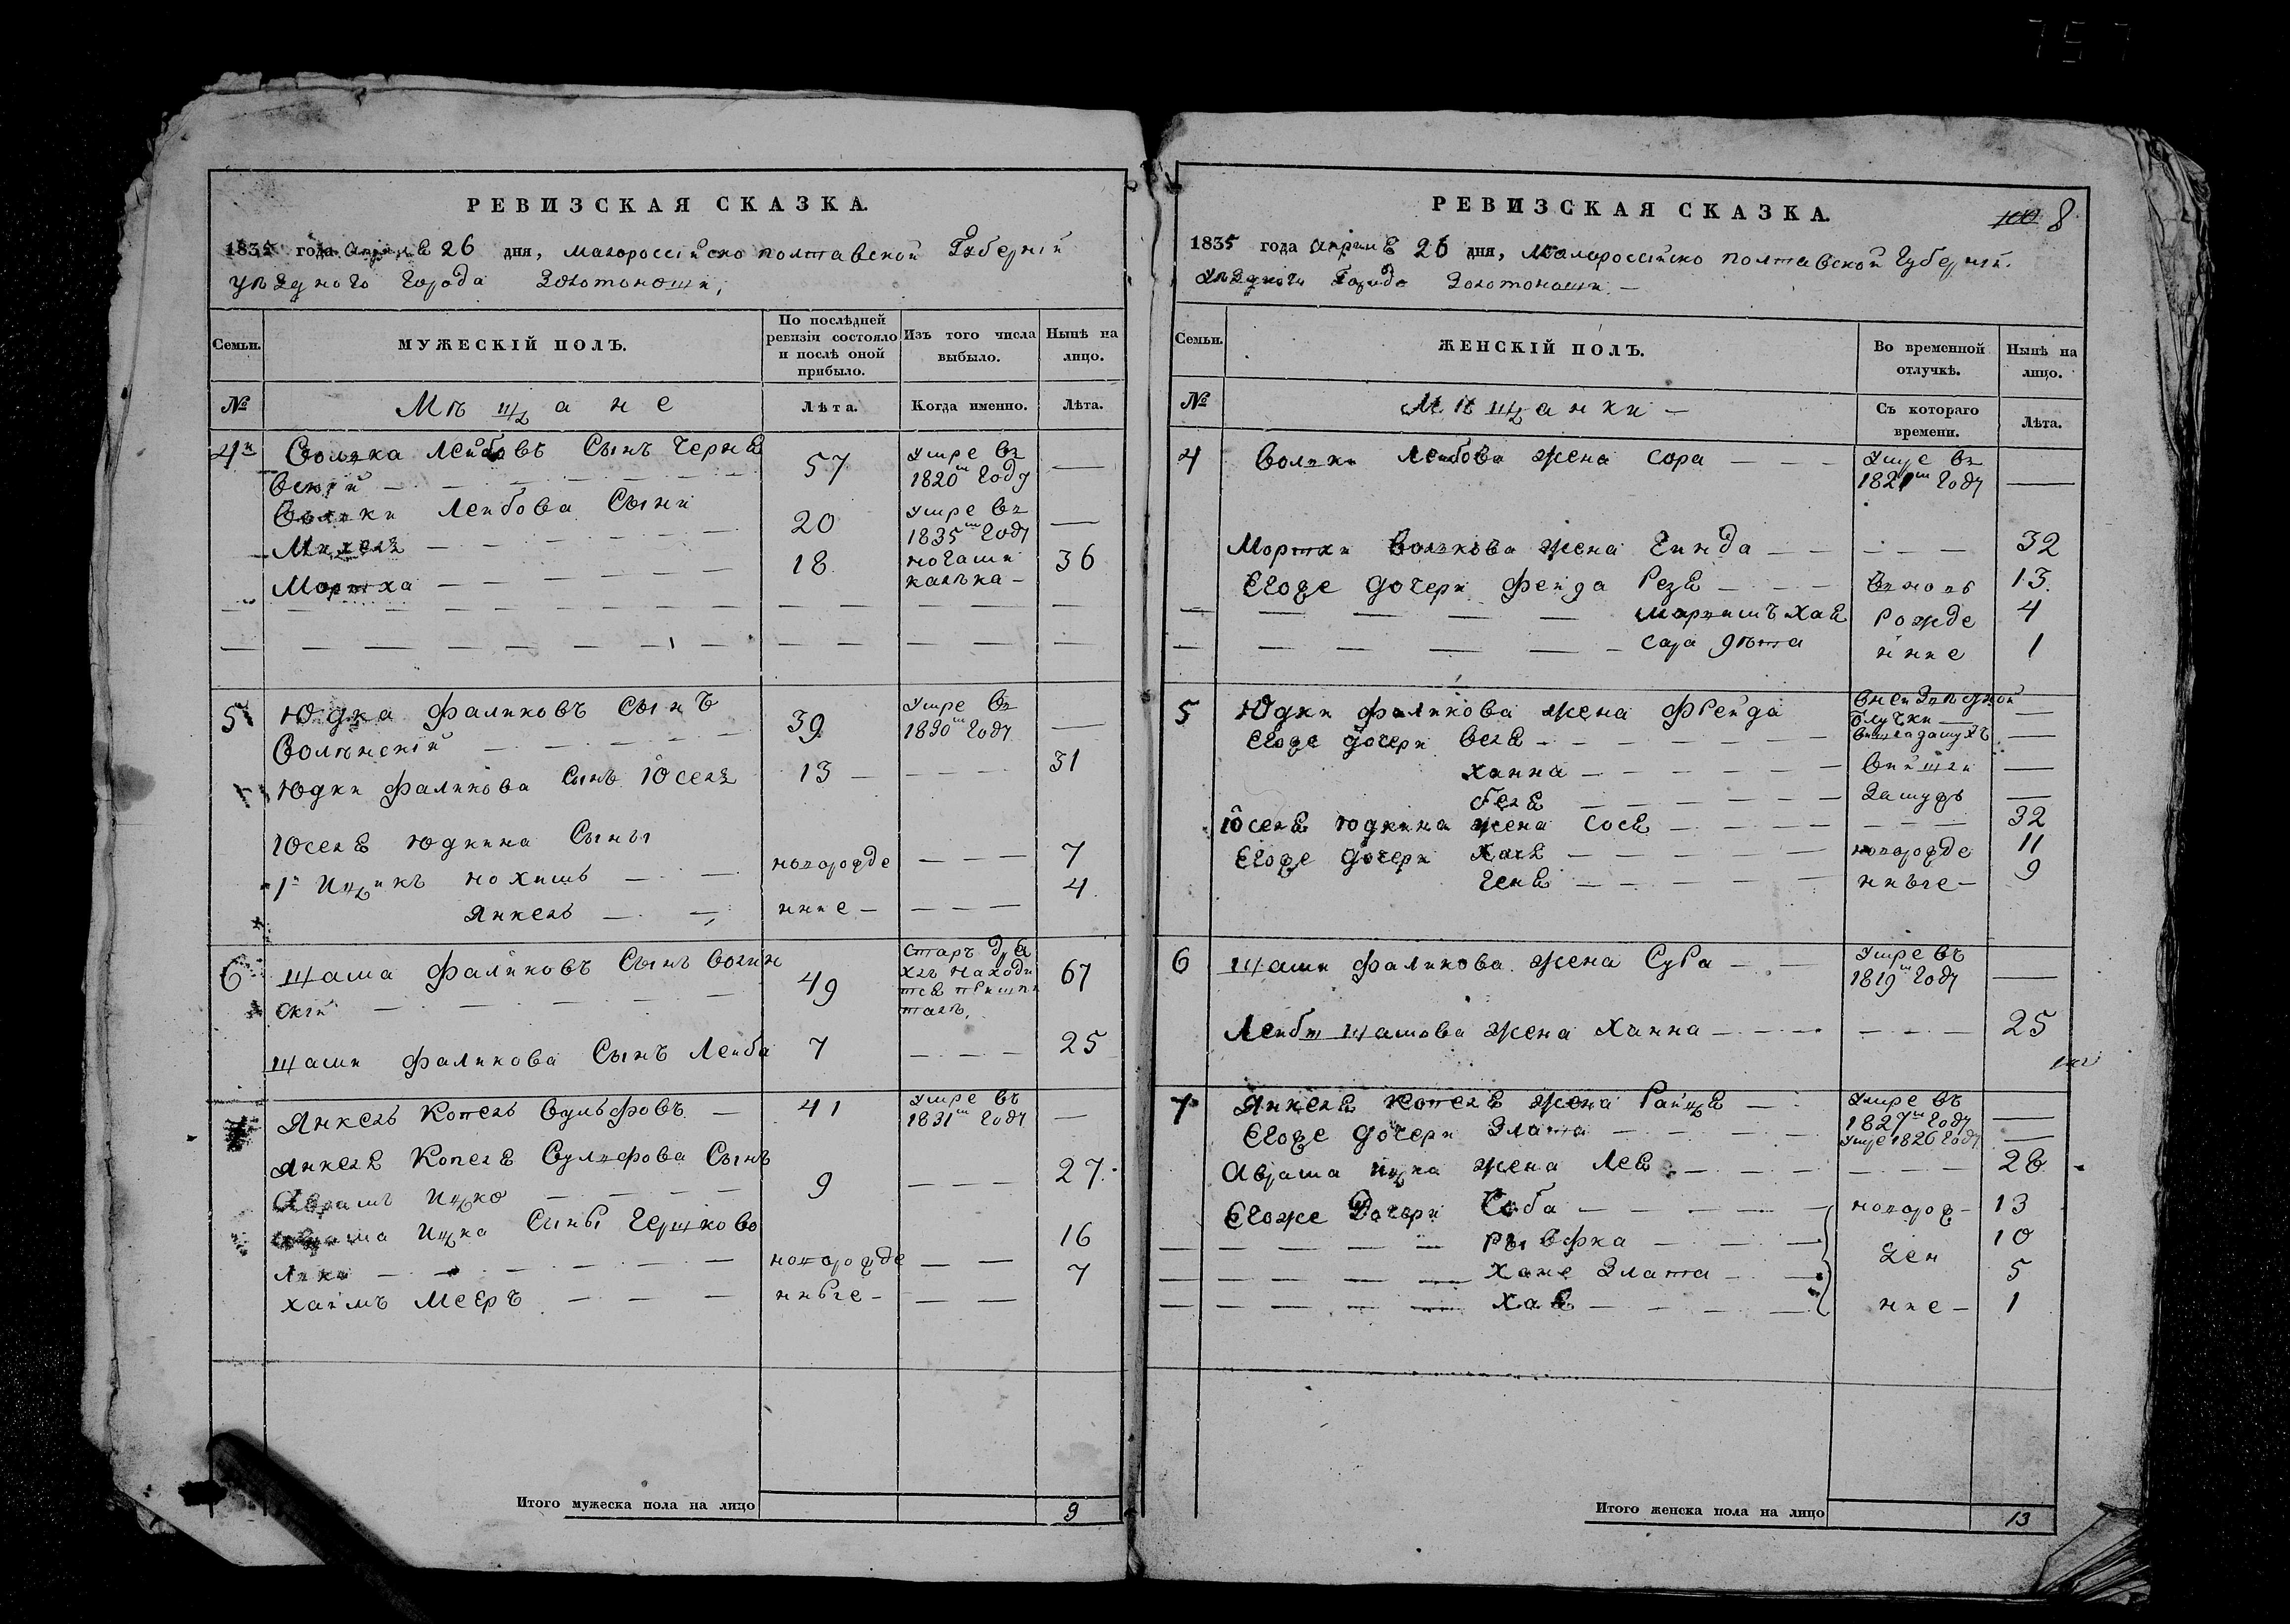 РЕВИЗСКАЯ СКАЗКА.
1835 года Апреля 26 дня, малороссiйско полтавской Губернiи
уѣзднаго города Золотоноши,
Семьи.
МУЖЕСКІЙ ПОЛЪ.
По послѣдней ревизіи состояло и послѣ оной прибыло.
Изъ того числа выбыло.
Нынѣ на лицо.
№
Мѣщане
Лѣта.
Когда именно.
Лѣта.
4й Волька Лейбовъ Сынъ Черня 57 умре въ
вскій 1820м году
Вольки Лейбова Сыни
20 умре въ
Михель 1835м году
18 36
Мортха калѣка
5 Юдка Фаликовъ Сынъ 39 умре въ
Волынскій 1830м году
Юдки Фаликова Сынъ Юсель 13 31
Юселя Юдкина Сыны
1й Ицикъ Нохимъ новорожде 7
Янкель нние 4
6 Шама Фаликовъ Сынъ Волин 49 67
скій
Шами Фаликова Сынъ Лейба 7 25
Янкель Копель Вульфовъ 41 умре въ
1831м году
Янкеля Копеля Вульфова Сынъ
Аврамъ Ицко 9 27
Аврама Ицка Сыны Гершково 16
новорожде
Хаимъ Мееръ нные 7
Итого мужеска пола на лицо 9
РЕВИЗСКАЯ СКАЗКА.
8
1835 года апреля 26 дня, Малоросійско полтавской Губерніи.
уѣзднаго Города Золотоноши
Семьи.
ЖЕНСКІЙ ПОЛЪ.
Во временной отлучкѣ.
Нынѣ на лицо.
№
Мѣщанки
Съ котораго времени.
Лѣта.
4 Вольки Лейбова жена Сора умре въ
1821м году
Мортхи Волькова жена Гинда 32
Егоже дочери Фейга Резя вновь 13
Хая рожде 4
Сара нние 1
5 Юдки Фаликова жена Фрейда
Егоже дочери Беля
Ханна
Замужъ
Юселя Юдкина жена Сося 32
Егоже дочери Хая новорожде 11
Геня нные 9
6 Шами Фаликова жена Сура умре въ
1819м году
Лейби Шамова жена Ханна 25
7 Янкеля Копеля жена Райця умре въ
1827м году
Егоже дочери Злата умре 1826 году
Аврама Ицка жена Лея 28
Егоже Дочери новорож 13
Рывфка 10
Хане Злата ден 5
Хая ние 1
Итого женска пола на лицо 13